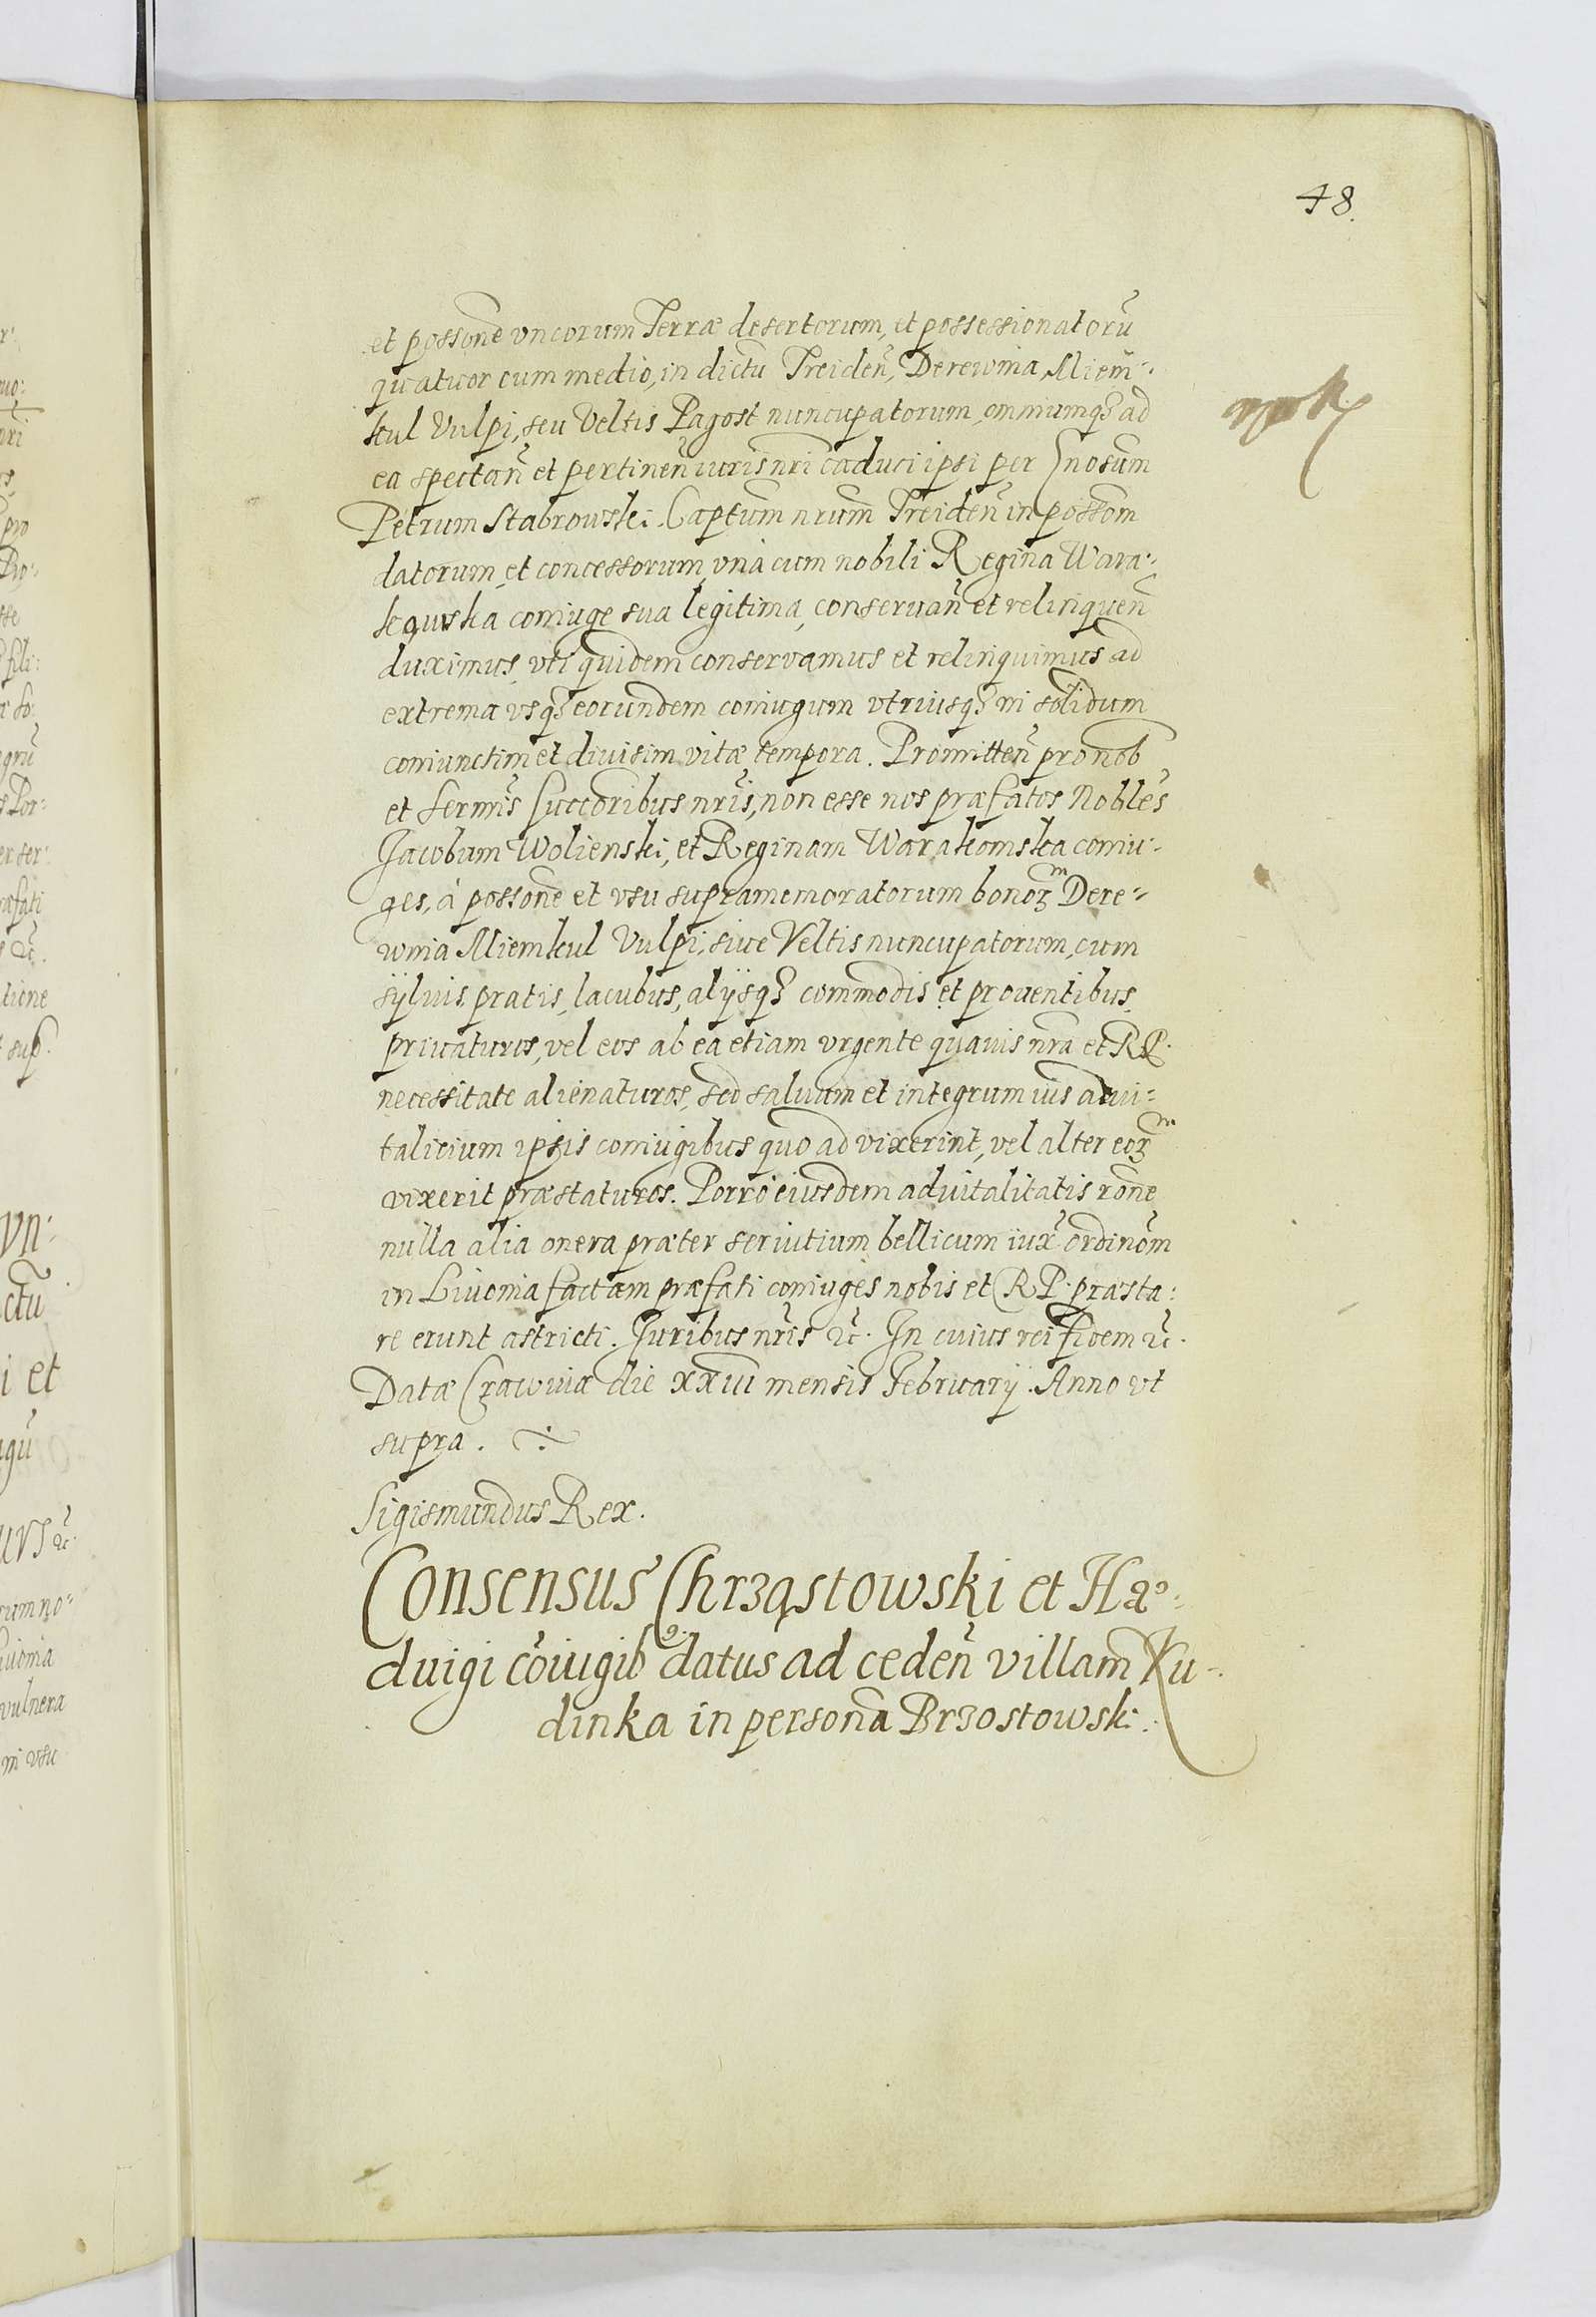 48.
et possone vncorum Terræ desertorum, et possessionatorũ
quatuor cum medio, in dictu Treideñ, Derewnia, Miem-
kul Vulpi, seu Veltis Pagost nuncupatorum, omniumqȝ ad
ea spectañ et pertineñ iuris nri caduci ipsi per Gnosum
Petrum Stabrowski Captum nrum Treideñ in possom
datorum et concessorum, vnà cum nobili Regina Wara-
kowska coniuge sua legitima, conseruañ et relinqueñ
duximus, vti quidem conservamus et relinquimus ad
extrema vsqȝ eorundem coniugum vtriusqȝ in solidum
coniunctim et diuisim vitæ tempora. Promitteñ pro nob
et sermis succoribus nris, non esse nos præfatos Nobles
Jacobum Wolienski, et Reginam Warakomska coniu-
ges, à possone et vsu supramemoratorum bonoꝝ Dere-
wnia Miemkul Vulpi, siue Veltis nuncupatorum, cum
syluis pratis, lacubus, alijsqȝ commodis et prouentibus
priuaturos, vel eos ab ea etiam vrgente quauis nra et RP.
necessitate alienaturos, sed saluum et integrum ius adui-
talitium ipsis coniugibus quo ad vixerint, vel alter eoꝝ
vixerit præstaturos. Porrò eiusdem aduitalitatis rone
nulla alia onera præter seruitium bellicum iux̃ ordinom
in Liuonia factam præfati coniuges nobis et RP. præsta-
re erunt astricti. Juribus nris ꝛc. In cuius rei fidem ꝛc.
Datæ Cracouiæ die xxiii mensis Februarij. Anno vt
supra.
Sigismundus Rex.
Consensus Chrząstowski et Ha-
duigi coiugib9 datus ad cedeñ villam Ku-
dinka in persona Brzostowski.